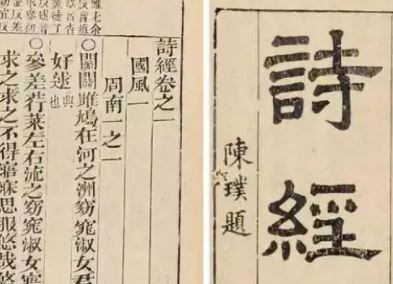 詩經
陳璞題
詩經卷之一
國風一
周南一之一
○關關雎鳩在河之洲窈窕淑女君
好逑興也
○參差荇菜左右流之窈窕淑女寤
求之求之不得寤寐思服悠哉悠